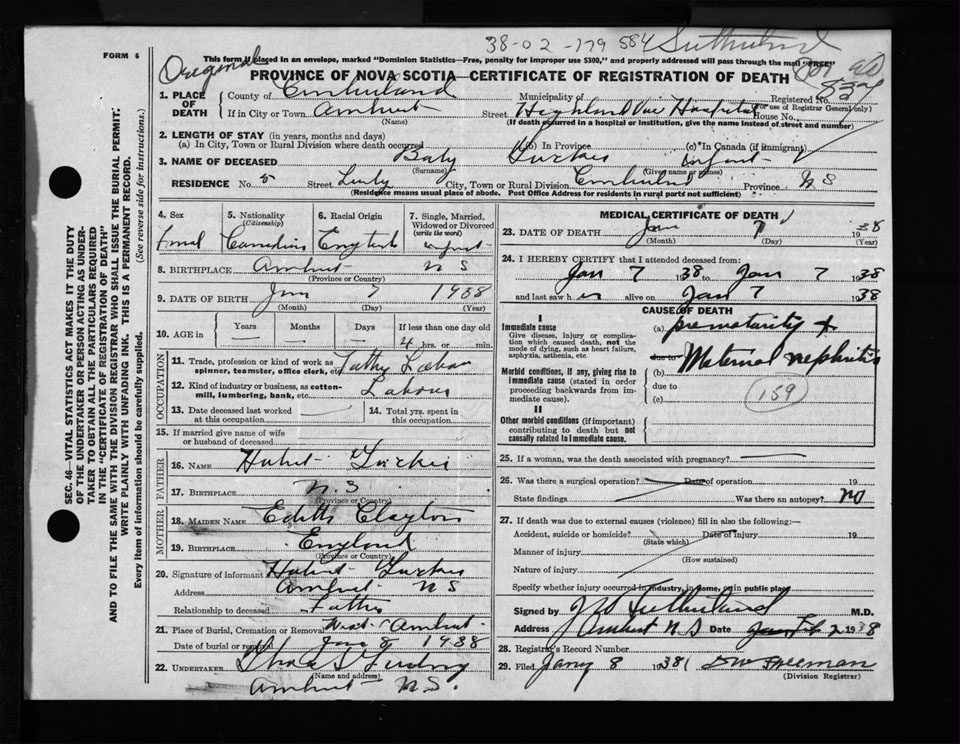 38-02-179 584 Sutherland
FORM 6
Original
This form if placed in an envelope, marked "Dominion Statistics—Free, penalty for improper use $300," and properly addressed will pass through the mail "FREE"
PROVINCE OF NOVA SCOTIA—CERTIFICATE OF REGISTRATION OF DEATH
1. PLACE OF DEATH
County of Cumberland Municipality of Registered No.
(For use of Registrar General only)
If in City or Town Amherst Street Highland View Hospital House No.
(Name) (If death occurred in a hospital or institution, give the name instead of street and number)
2. LENGTH OF STAY (in years, months and days)
(a) In City, Town or Rural Division where death occurred (b) In Province (c) In Canada (if immigrant)
3. NAME OF DECEASED Baby Infant
(Surname) (Given name or names)
RESIDENCE No. 5 Street City, Town or Rural Division Cumberland Province N S
(Residence means usual place of abode. Post Office Address for residents in rural parts not sufficient)
4. Sex 5. Nationality (Citizenship) 6. Racial Origin 7. Single, Married, Widowed or Divorced (write the word)
Canadian English infant
8. BIRTHPLACE Amherst N S
(Province or Country)
9. DATE OF BIRTH Jan 7 1938
(Month) (Day) (Year)
10. AGE in Years Months Days If less than one day old
4 hrs. or min.
OCCUPATION
11. Trade, profession or kind of work as spinner, teamster, office clerk, etc. Labor
12. Kind of industry or business, as cotton-mill, lumbering, bank, etc. Labour
13. Date deceased last worked at this occupation 14. Total yrs. spent in this occupation
15. If married give name of wife or husband of deceased
FATHER
16. NAME
17. BIRTHPLACE N S
(Province or Country)
MOTHER
18. MAIDEN NAME Edith Clayton
19. BIRTHPLACE England
(Province or Country)
20. Signature of informant
Address Amherst N S
Relationship to deceased Father
21. Place of Burial, Cremation or Removal West Amherst
Date of burial or removal Jan 8 1938
22. UNDERTAKER
(Name and address)
Amherst N.S.
MEDICAL CERTIFICATE OF DEATH
23. DATE OF DEATH Jan 7 1938
(Month) (Day) (Year)
24. I HEREBY CERTIFY that I attended deceased from:
Jan 7 1938 to Jan 7 1938
and last saw h er alive on Jan 7 1938
CAUSE OF DEATH
I
Immediate cause
Give disease, injury or complication which caused death, not the mode of dying, such as heart failure, asphyxia, asthenia, etc.
(a) prematurity +
due to
Morbid conditions, if any, giving rise to immediate cause (stated in order proceeding backwards from immediate).
(b) Maternal nephritis
due to
(c)
159
II
Other morbid conditions (if important) contributing to death but not causally related to immediate cause.
25. If a woman, was the death associated with pregnancy?
26. Was there a surgical operation? Date of operation 19
State findings Was there an autopsy? no
27. If death was due to external causes (violence) fill in also the following:—
Accident, suicide or homicide? Date of injury 19
(State which)
Manner of injury
(How sustained)
Nature of injury
Specify whether injury occurred in industry, in home, or in public place
Signed by J A Sutherland M.D.
Address Amherst N S Date Feb 2 1938
28. Registrar's Record Number
29. Filed Jany 8 1938 Freeman
(Division Registrar)
SEC. 46—VITAL STATISTICS ACT MAKES IT THE DUTY
OF THE UNDERTAKER OR PERSON ACTING AS UNDER-
TAKER TO OBTAIN ALL THE PARTICULARS REQUIRED
IN THE "CERTIFICATE OF REGISTRATION OF DEATH"
AND TO FILE THE SAME WITH THE DIVISION REGISTRAR WHO SHALL ISSUE THE BURIAL PERMIT.
WRITE PLAINLY WITH UNFADING INK. THIS IS A PERMANENT RECORD.
Every item of information should be carefully supplied. (See reverse side for instructions.)